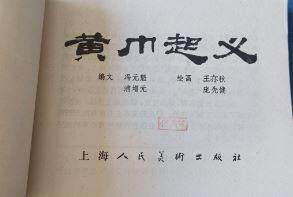 黄巾起义
编文 冯元魁 绘画 王亦秋
增元 庞先健
上海人民美術出版社